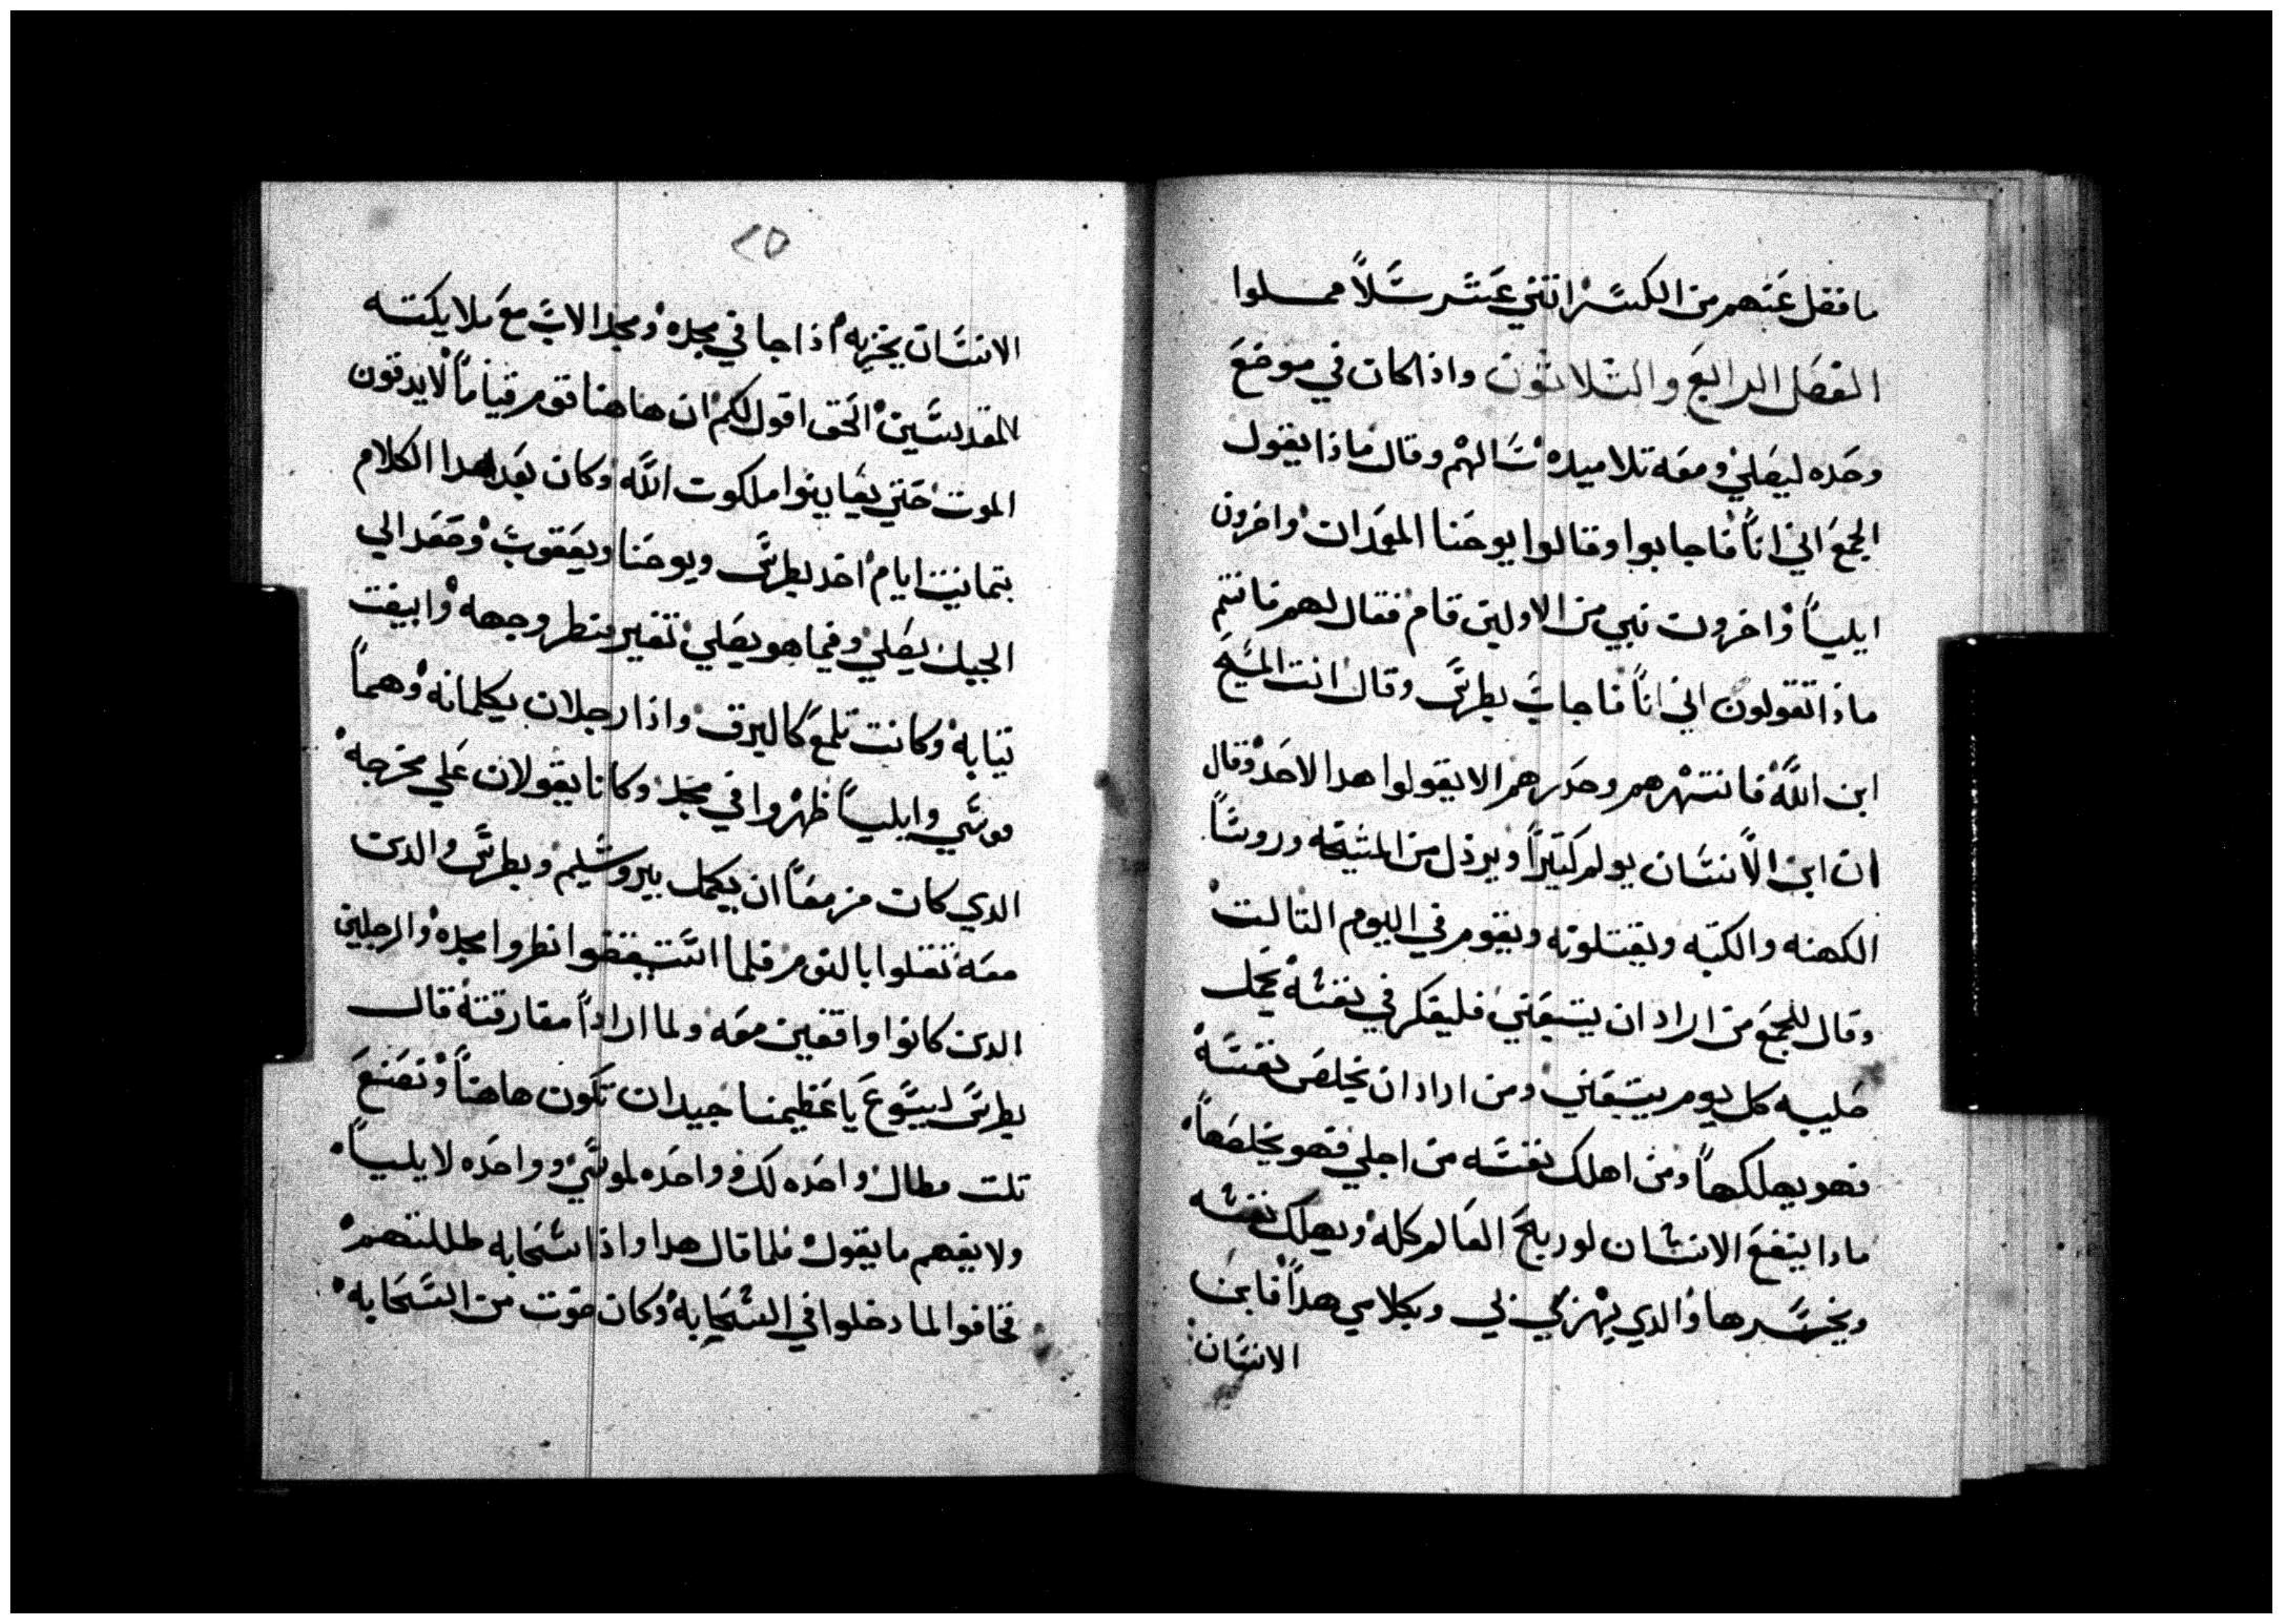 ما فضل عنهم من الكسر اتني عشر سلاً مملوا
الفصل الرابع والتلاتون واذا كان في موضع
وحده ليصلي ومعه تلاميده سالهم وقال ماذا يقول
الجمع اني اناً فاجابوا وقالوا يوحنا المعمدان واخرون
ايلياً واخرون نبي من الاولين قام فقال لهم فانتم
ماذا تقولون اني اناً فاجاب بطرس وقال انت المسيح
ابن الله فانتهرهم وحدرهم الا يقولوا هدا لاحد وقال
ان ابن الانسان يولم كتيراً ويرذل من المشيخه وروساً
الكهنه والكتبه ويقتلونه ويقوم في اليوم التالت
وقال للجمع من اراد ان يتبعني فليفكر في نفسه يحمل
صليبه كل يوم يتبعني ومن اراد ان يخلص نفسه
فهو يهلكهاً ومن اهلك نفسه من اجلي فهو يخلصهاً
مادا ينفع الانسان لو ربح العالم كله ويهلك نفسه
ويخسرها والدي يهزي بي وبكلامي هداً فابن
الانسان
٢٥
الانسان يخزيه اذا جا في مجده ومجد الاب مع ملايكته
المقدسين الحق اقول لكم ان هاهنا قوم قياماً لا يدقون
الموت حتي يعاينوا ملكوت الله وكان بعد هدا الكلام
بتمانيت ايام اخد بطرس ويوحنا ويعقوب وصعد الي
الجبل يصلي وفيما هو يصلي تغير منطر وجهه وابيضت
تيابه وكانت تلمع كالبرق واذا رجلان يكلمانه وهماً
موسي وايلياً ظهروا في مجد وكانا يقولان علي مخرجه
الدي كان مزمعاً ان يكمل بيروشليم وبطرس والدين
معه تقلوا بالنوم فلما استيقضوا نطروا مجده والرجلين
الدين كانوا واقفين معه ولما ارادا مفارقته قال
بطرس ليسوع يا عظيمنا جيد ان تكون هاهناً ونصنع
تلت مطال واحده لك وواحده لموسي وواحده لايلياً
ولا يفهم ما يقول فلما قال هدا واذا سحابه طللتهم
فخافوا لما دخلوا في السحابه وكان صوت من السحابه